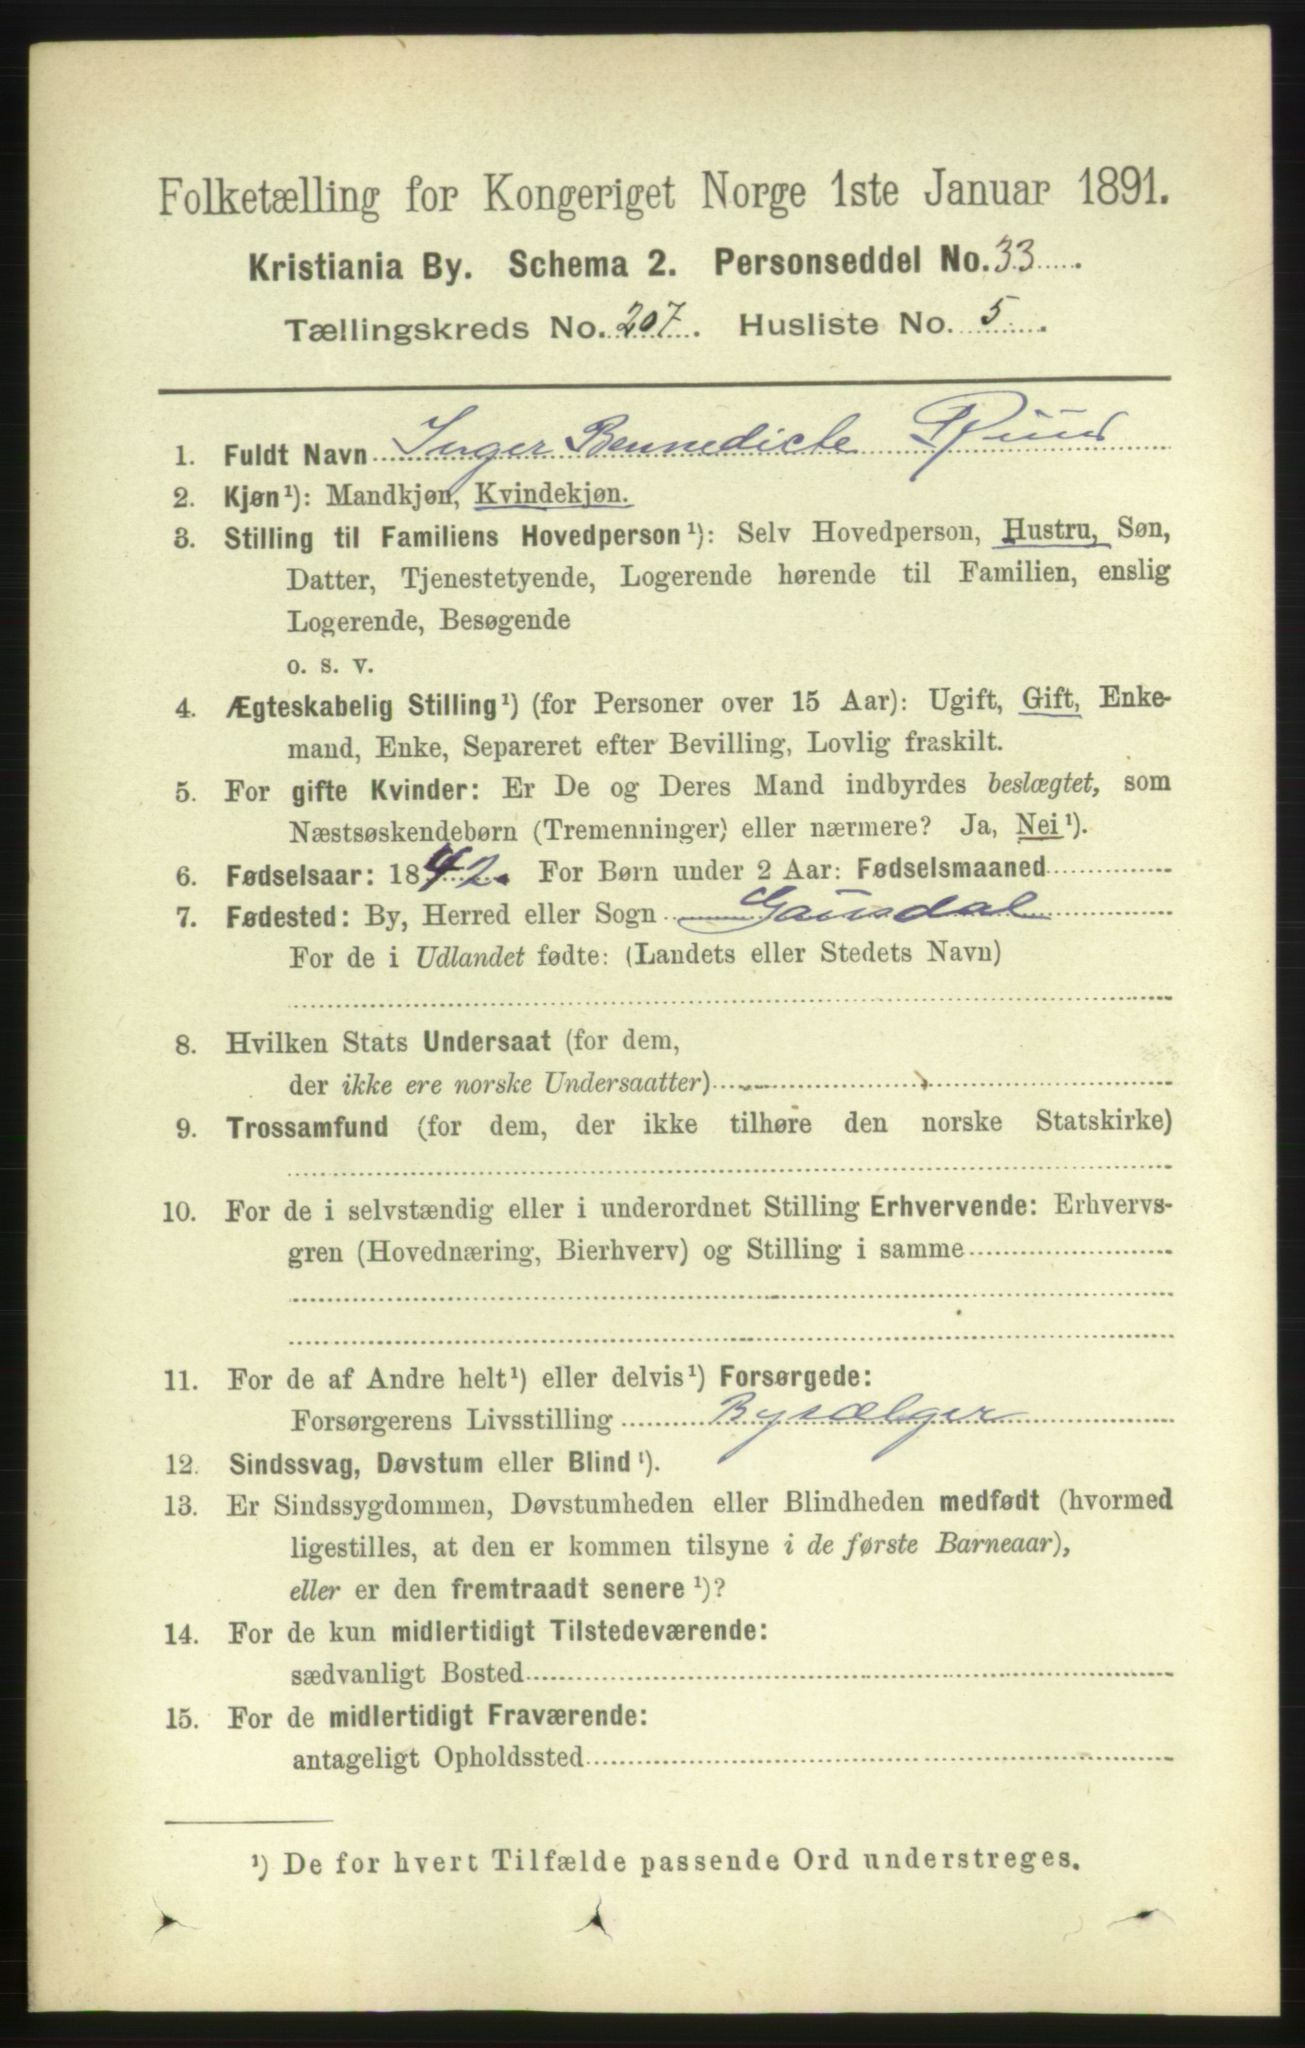 Folketælling for Kongeriget Norge 1ste Januar 1891.
Kristiania By. Schema 2. Personseddel No. 33
Tællingskreds No. 207. Husliste No. 5.
1. Fuldt Navn Inger Bennedicte Ruud
2. Kjøn¹): Mandkjøn, Kvindekjøn.
3. Stilling til Familiens Hovedperson¹): Selv Hovedperson, Hustru, Søn,
Datter, Tjenestetyende, Logerende hørende til Familien, enslig
Logerende, Besøgende
o. s. v.
4. Ægteskabelig Stilling¹) (for Personer over 15 Aar): Ugift, Gift, Enke-
mand, Enke, Separeret efter Bevilling, Lovlig fraskilt.
5. For gifte Kvinder: Er De og Deres Mand indbyrdes beslægtet, som
Næstsøskendebørn (Tremenninger) eller nærmere? Ja, Nei¹).
6. Fødselsaar: 1842. For Børn under 2 Aar: Fødselsmaaned
7. Fødested: By, Herred eller Sogn Gausdal
For de i Udlandet fødte: (Landets eller Stedets Navn)
8. Hvilken Stats Undersaat (for dem,
der ikke ere norske Undersaatter)
9. Trossamfund (for dem, der ikke tilhøre den norske Statskirke)
10. For de i selvstændig eller i underordnet Stilling Erhvervende: Erhvervs-
gren (Hovednæring, Bierhverv) og Stilling i samme
11. For de af Andre helt¹) eller delvis¹) Forsørgede:
Forsørgerens Livsstilling Bysælger
12. Sindssvag, Døvstum eller Blind¹).
13. Er Sindssygdommen, Døvstumheden eller Blindheden medfødt (hvormed
ligestilles, at den er kommen tilsyne i de første Barneaar),
eller er den fremtraadt senere¹)?
14. For de kun midlertidigt Tilstedeværende:
sædvanligt Bosted
15. For de midlertidigt Fraværende:
antageligt Opholdssted
¹) De for hvert Tilfælde passende Ord understreges.